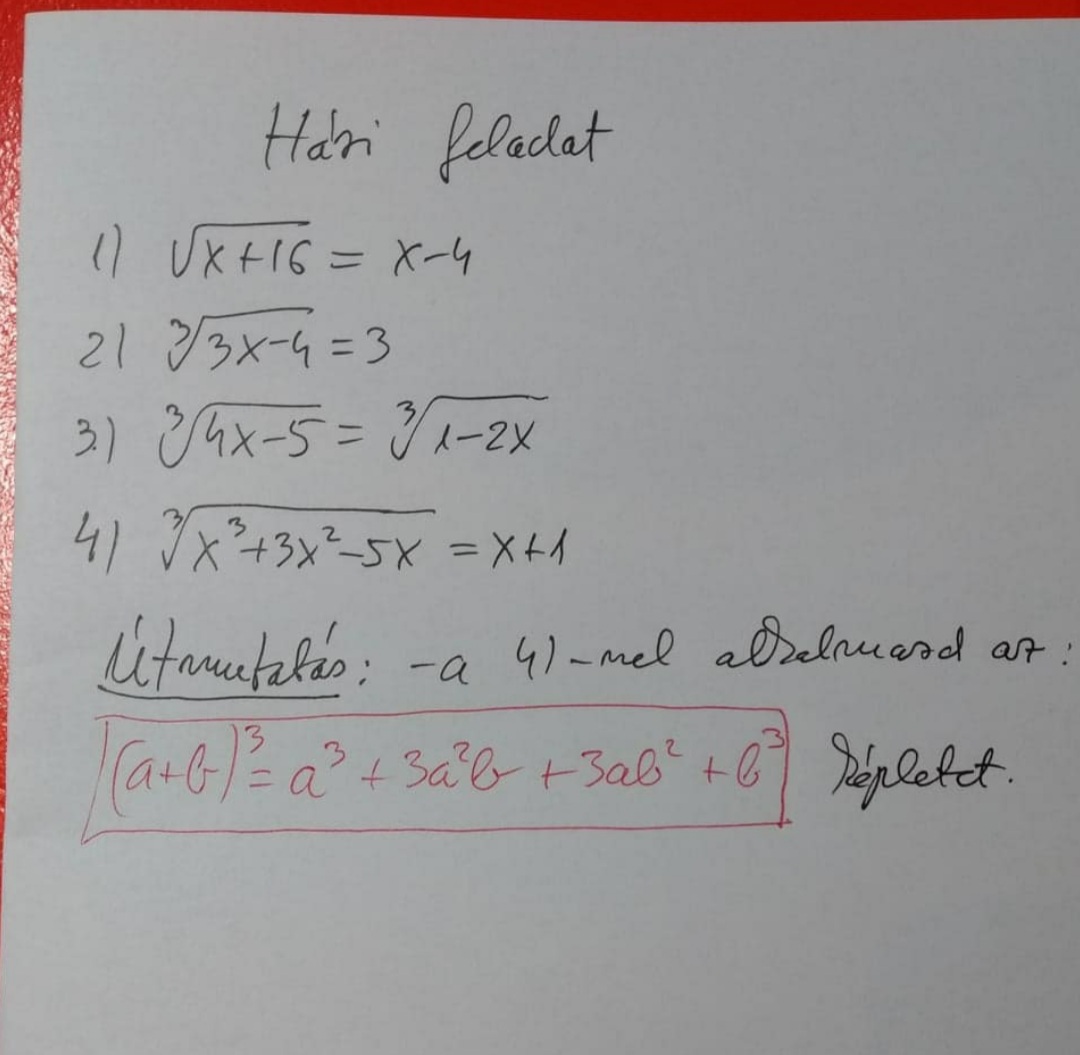 Házi feladat
1) √x+16 = x-4
2) ∛3x-4 = 3
3.) ∛4x-5 = ∛1-2x
4) ∛x³+3x²-5x = x+1
Útmutatás: -a 4)-nel alkalmazd az:
(a+b)³ = a³ + 3a²b + 3ab² + b³ képletet.